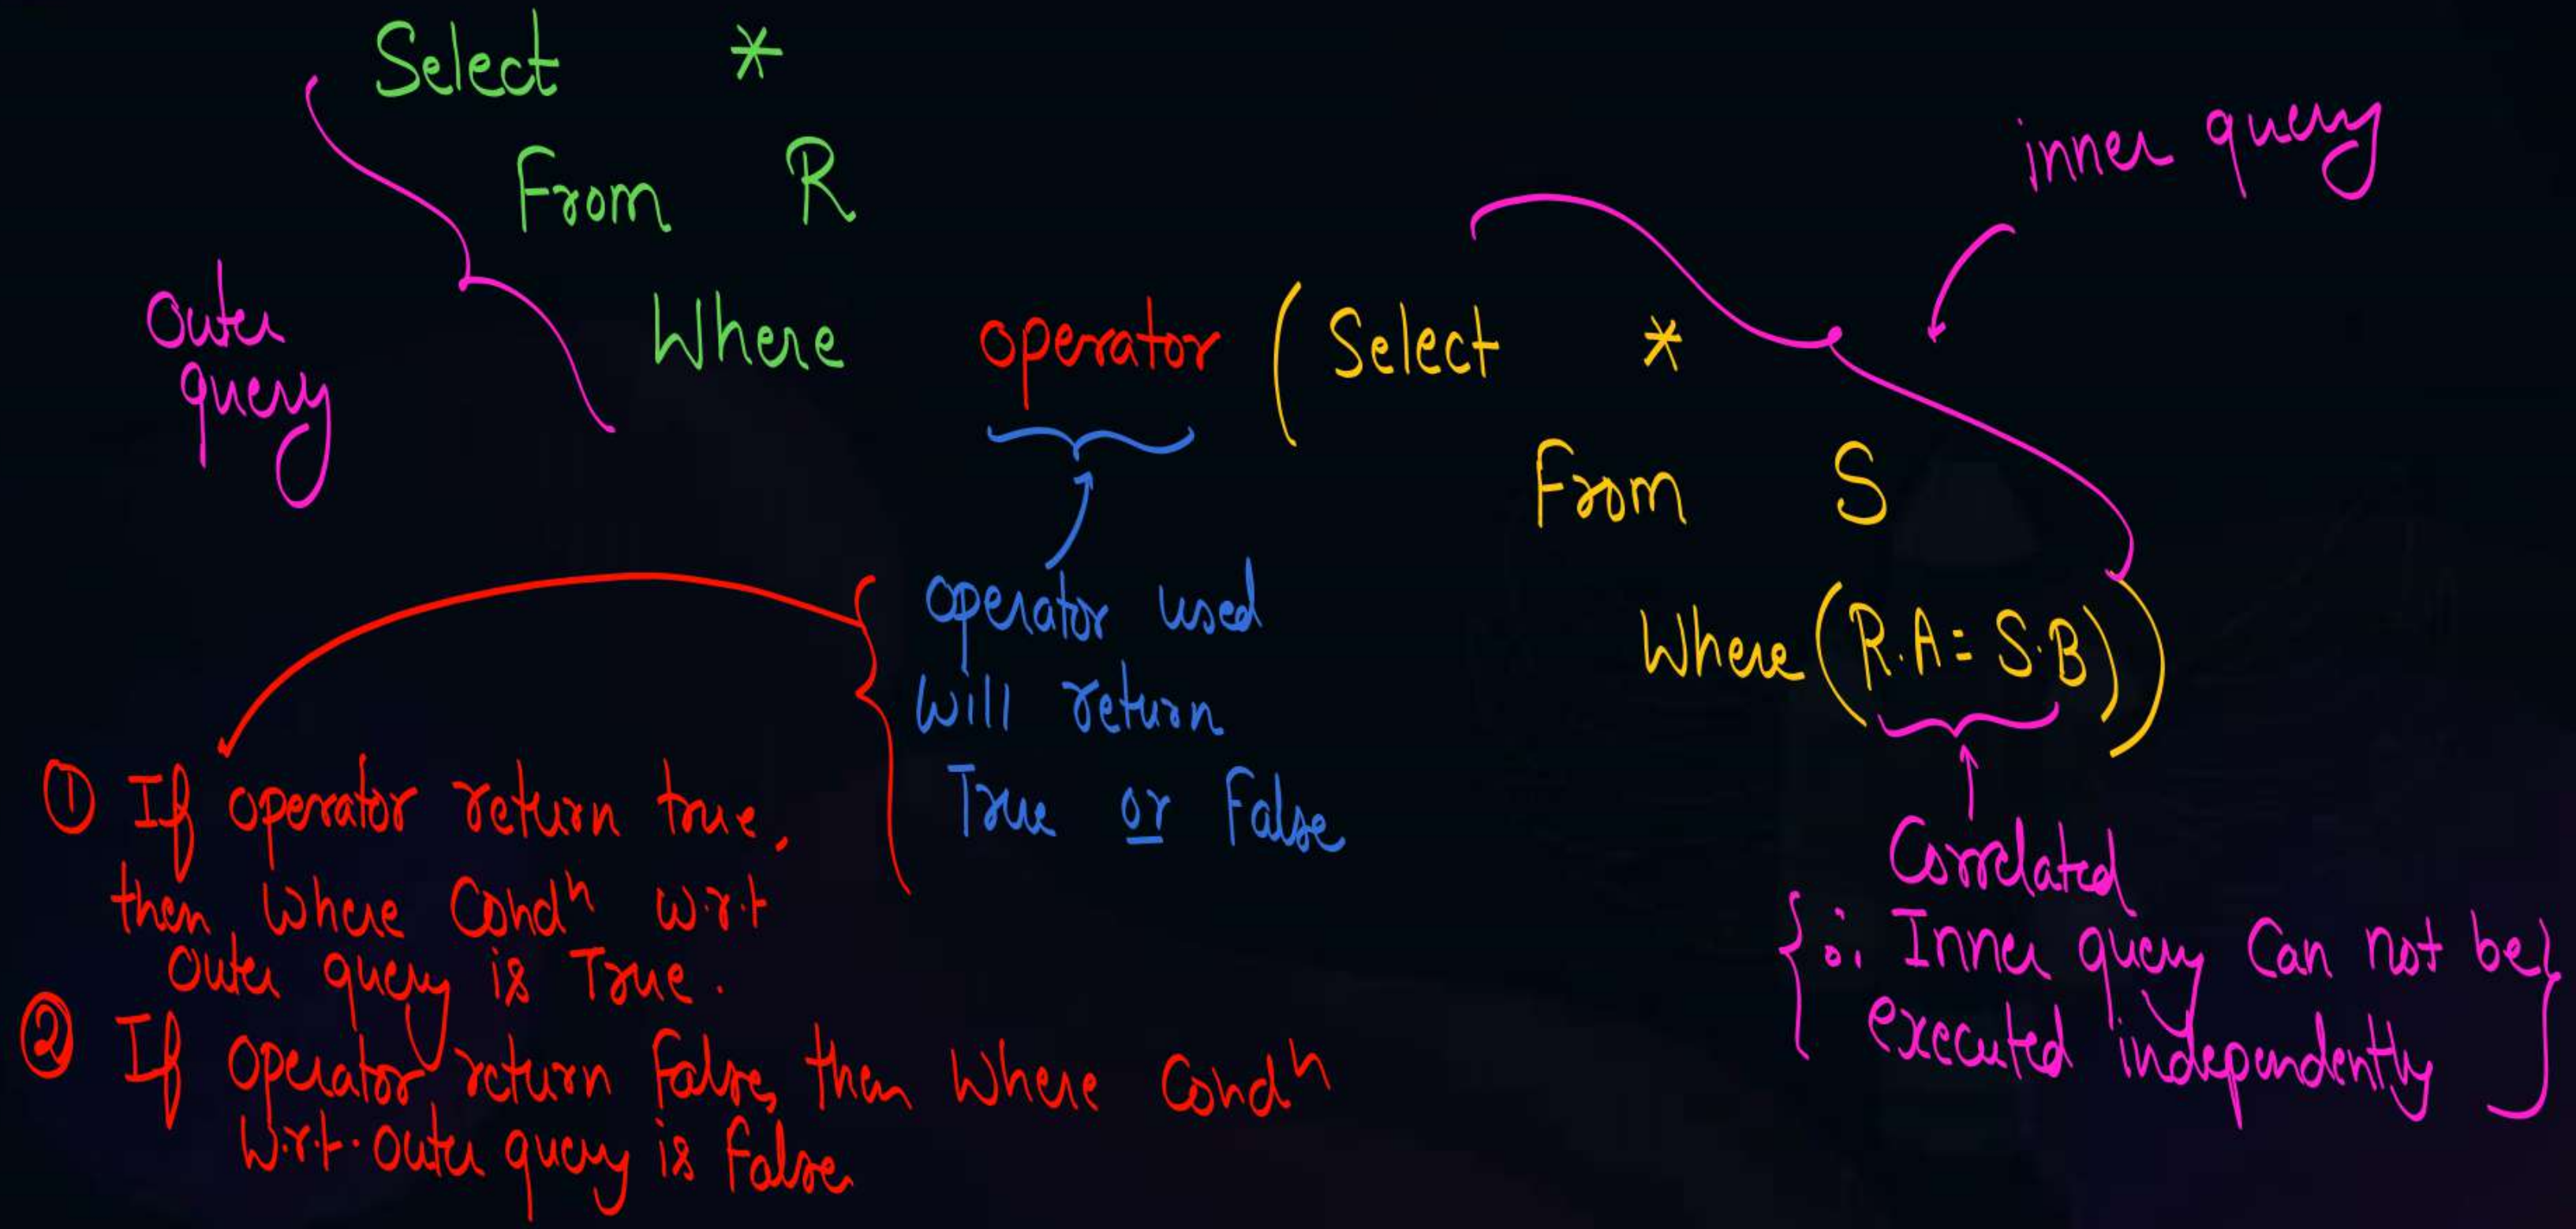 Select *
From R
inner query
Outer
query
Where operator (Select *
From S
Where (R.A = S.B))
operator used
will return
True or False
Correlated
{∴ Inner query Can not be
executed independently}
① If operator return true,
then where Condⁿ w.r.t
outer query is True.
② If operator return false, then where Condⁿ
w.r.t. outer query is false